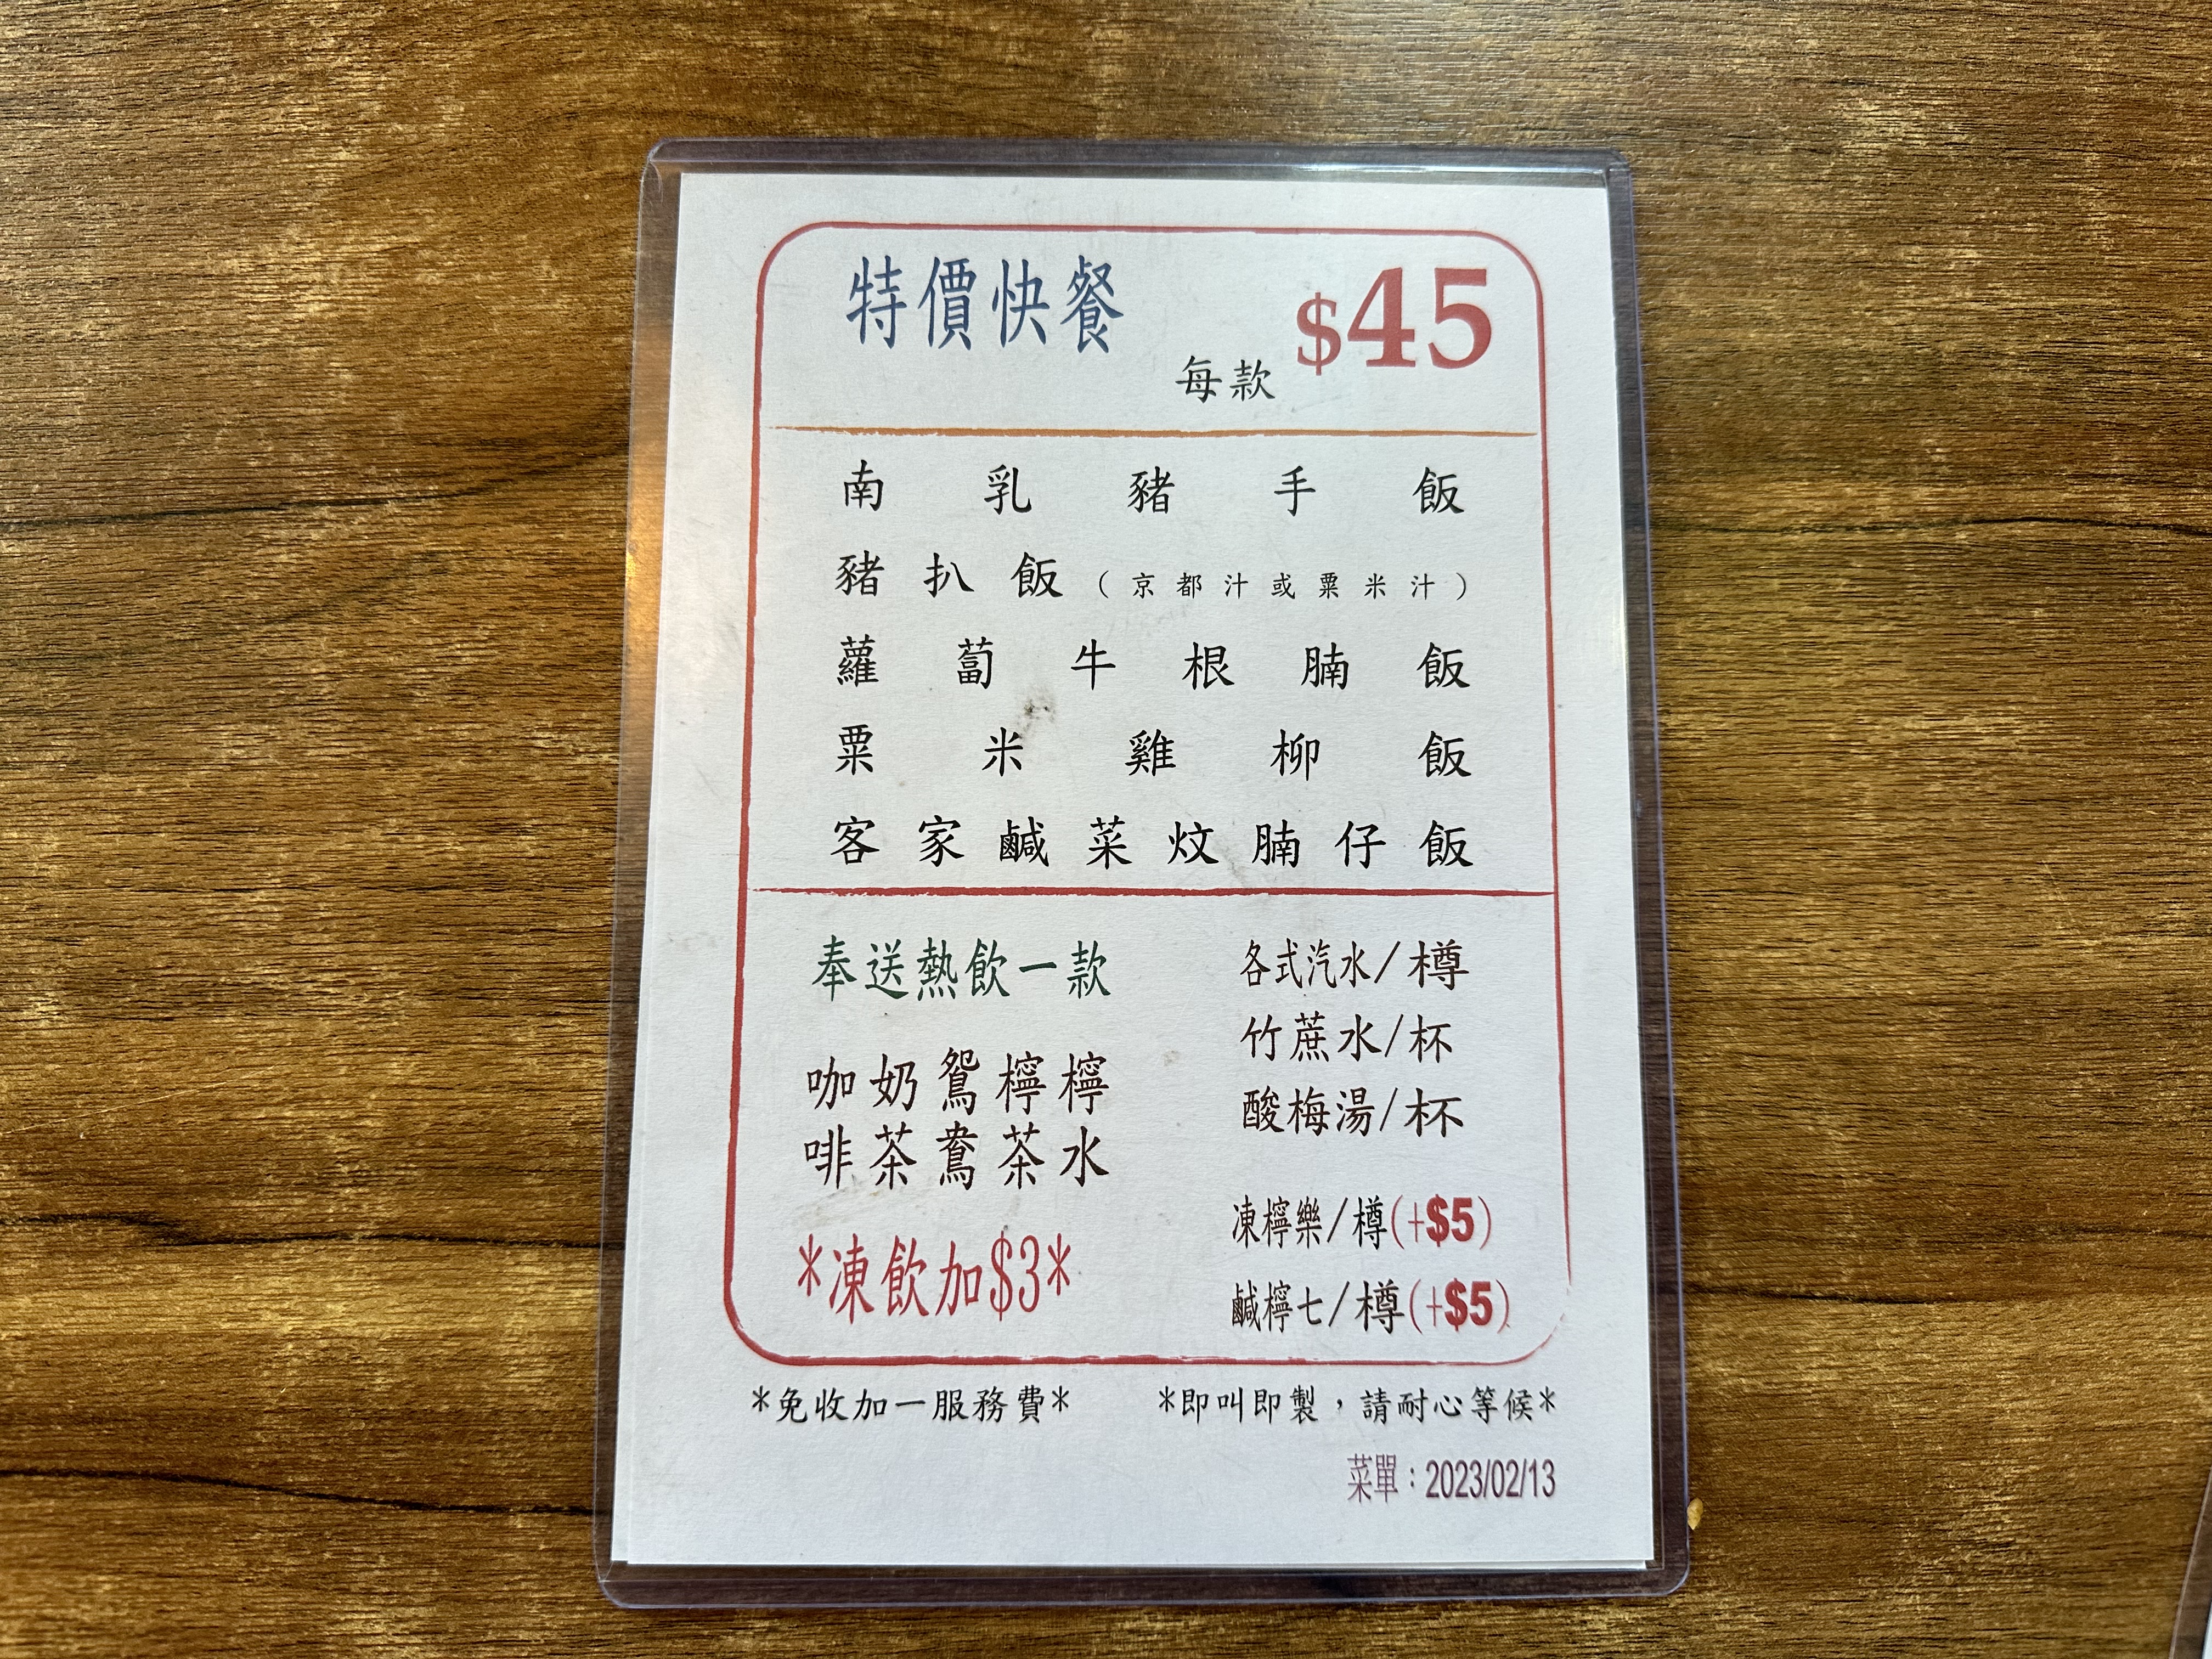 特價快餐
每款 $45
南乳豬手飯
豬扒飯(京都汁或粟米汁)
蘿蔔牛根腩飯
粟米雞柳飯
客家鹹菜炆腩仔飯
奉送熱飲一款
咖啡
奶茶
鴛鴦
檸茶
檸水
*凍飲加$3*
各式汽水/樽
竹蔗水/杯
酸梅湯/杯
凍檸樂/樽(+$5)
鹹檸七/樽(+$5)
*免收加一服務費*
*即叫即製,請耐心等候*
菜單:2023/02/13